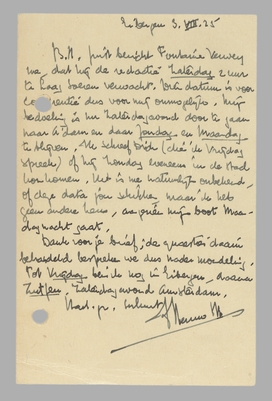 Eibergen 3.VIII.35
B.M., juist bericht Fontaine Verwey
me, dat hij de redactie Zaterdag 2 uur
te Laag Soeren verwacht. Die datum is voor
conventie dus voor mij onmogelijk. Mijn
bedoeling is om Zaterdagavond door te gaan
naar A'dam en daar Zondag en Maandag
te blijven. Ik schreef Dick (die ik Vrijdag
spreek) of hij Zondag eveneens in de stad
kon komen. Het is me natuurlijk onbekend
of deze data jou schikken, maar ik heb
geen andere keus, aangezien mijn boot Maan-
dagnacht gaat.
Dank voor je brief; de quaesties daarin
behandeld bespreken we dus nader mondeling.
Tot Vrijdag ben ik nog in Eibergen, daarna
Zutfen, Zaterdagavond Amsterdam.
Menno